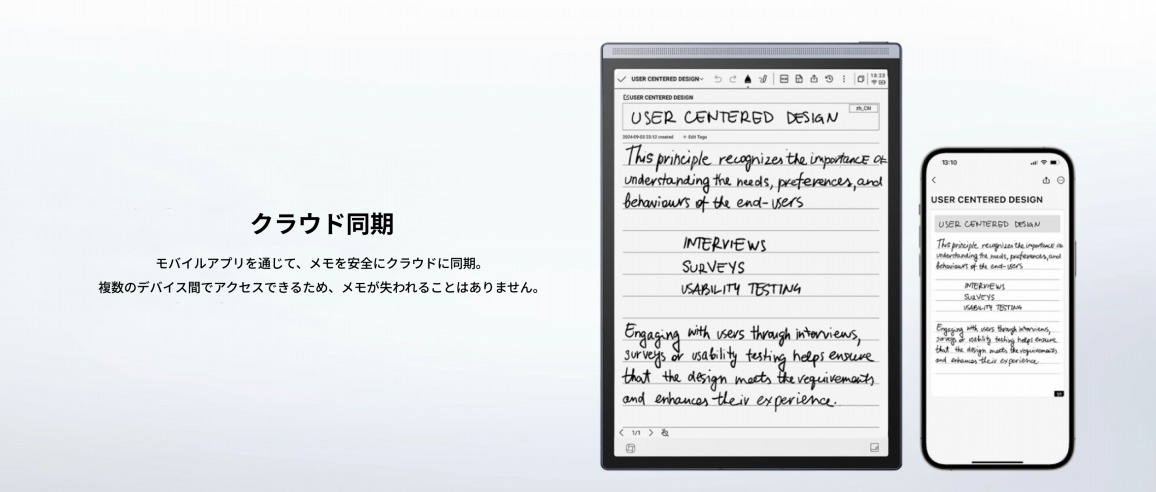 クラウド同期
モバイルアプリを通じて、メモを安全にクラウドに同期。
複数のデバイス間でアクセスできるため、メモが失われることはありません。
USER CENTERED DESIGN
18:23
USER CENTERED DESIGN
zh_CN
USER CENTERED DESIGN
2024-09-02 23:12 created + Edit Tags
This principle recognizes the importance of
understanding the needs, preferences, and
behaviours of the end-users
INTERVIEWS
SURVEYS
USABILITY TESTING
Engaging with users through interviews,
surveys or usability testing helps ensure
that the design meets the requirements
and enhances their experience.
1/1
13:10
USER CENTERED DESIGN
USER CENTERED DESIGN
This principle recognizes the importance
understanding the needs, preferences, and
behaviours of the end-users
INTERVIEWS
SURVEYS
USABILITY TESTING
Engaging with users through interviews,
surveys or usability testing helps ensure
that the design meets the requirements
and enhances their experience.